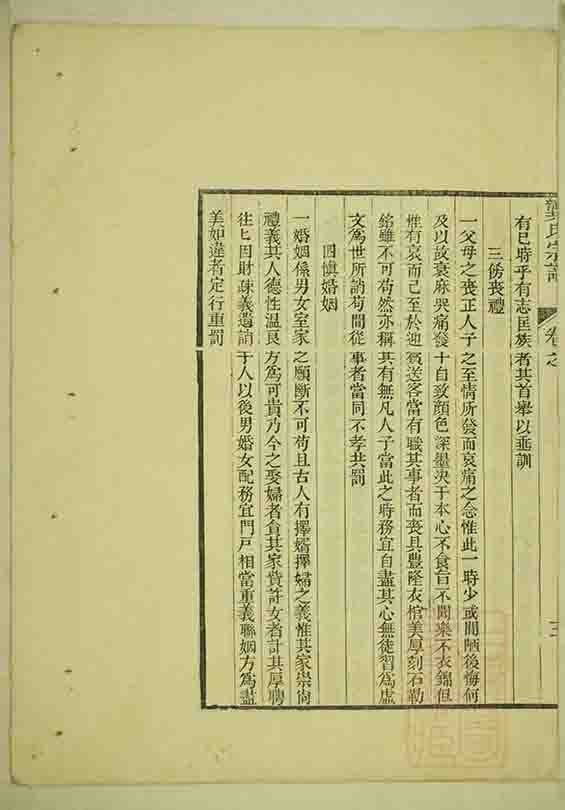 氏宗譜 卷之
有已時乎有志匡族者其首舉以垂訓
三飭喪禮
一父母之喪正人子之至情所發而哀痛之念惟此一時少或間陋後悔何
及以故衰麻哭痛發十自致顏色深墨决于本心不食旨不聞樂不衣錦但
惟有哀而已至於迎賓送客當有職其事者而喪具豐隆衣棺美厚刻石勒
銘雖不可苟然亦稱其有無凡人子當此之時務宜自盡其心無徒習為虛
文為世所誚苟間從事者當同不孝共罰
四慎婚姻
一婚姻係男女室家之願斷不可苟且古人有擇婿擇婦之義惟其家崇尚
禮義其人德性溫良方為可貴乃今之娶婦者貪其家貲許女者計其厚聘
往匕因財疎義遺誚于人以後男婚女配務宜門戶相當重義聯姻方為盡
美如違者定行重罰